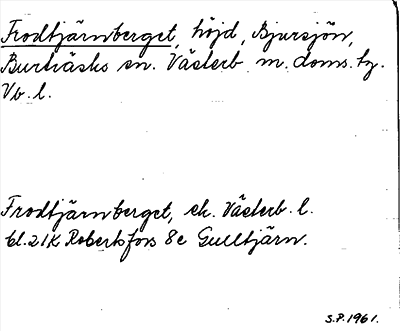 Frodtjärnberget, höjd, Bjursjön,
Burträsks sn. Västerb. m. doms. tg.
Vb. l.
Frodtjärnberget, ek. Västerb. l.
bl. 21K Robertsfors 8e Gulltjärn.
S.P. 1961.